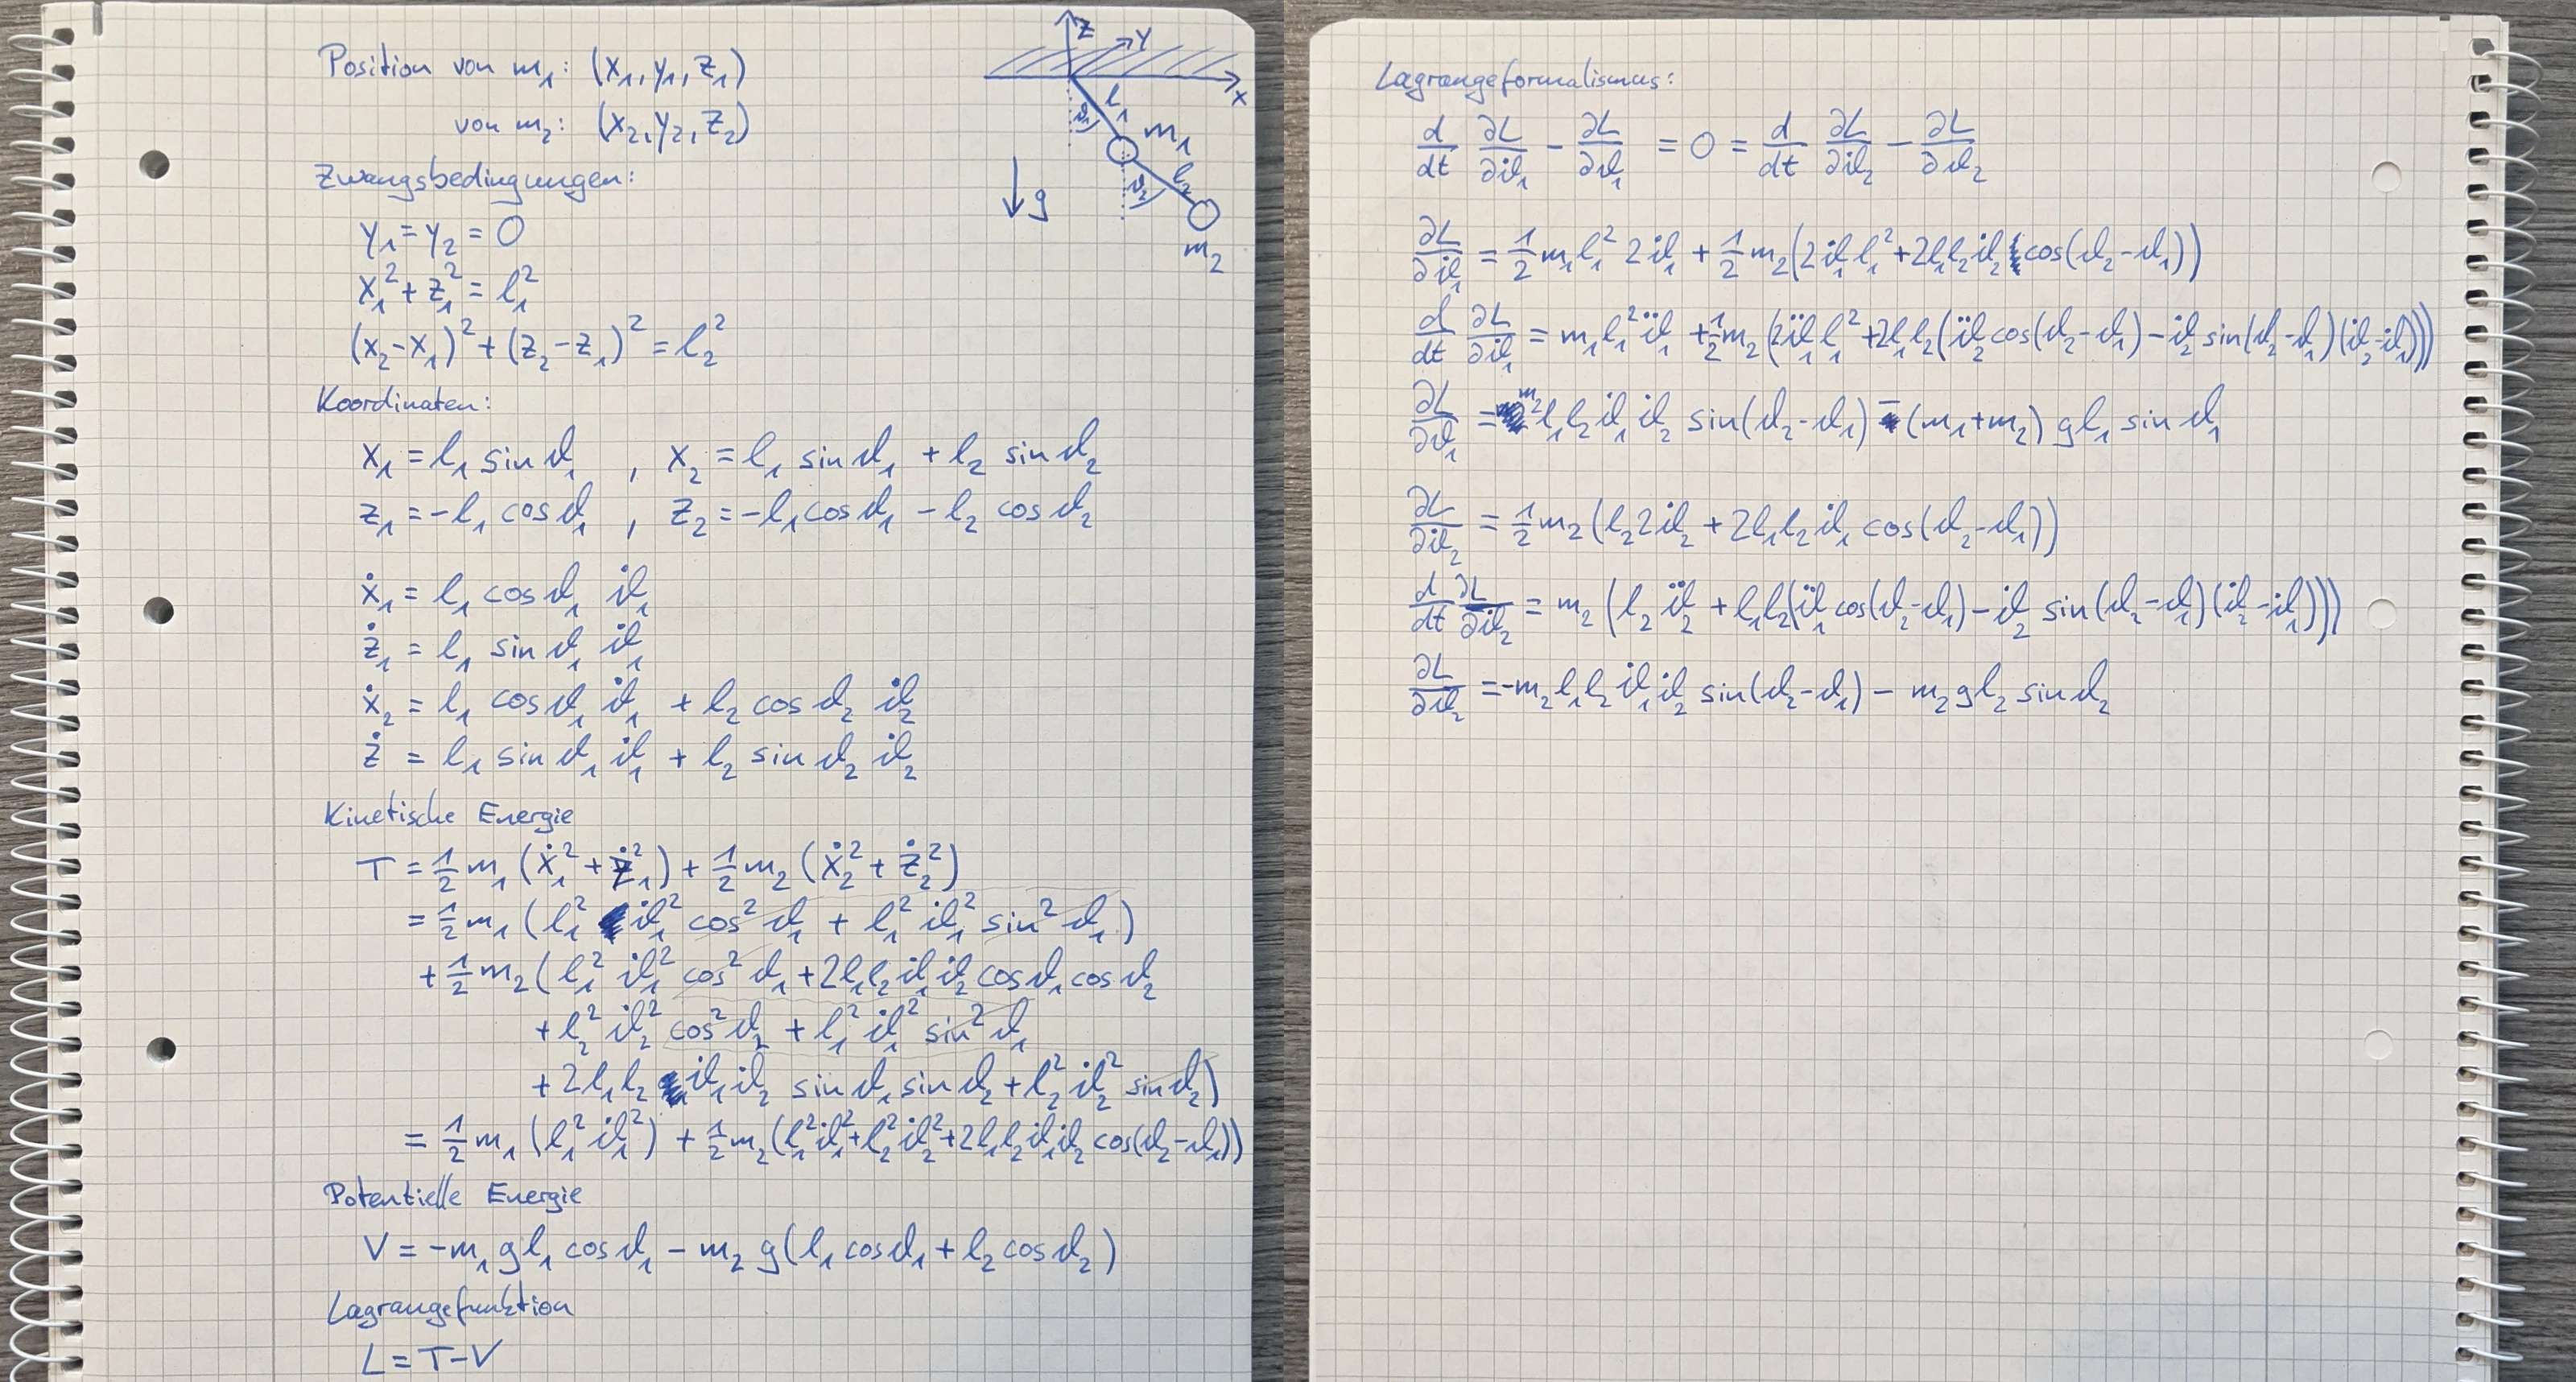 Position von m₁: (x₁, y₁, z₁)
von m₂: (x₂, y₂, z₂)
Zwangsbedingungen:
y₁ = y₂ = 0
x₁² + z₁² = l₁²
(x₂-x₁)² + (z₂-z₁)² = l₂²
z
y
x
l₁
ϑ₁
m₁
l₂
ϑ₂
m₂
g
Koordinaten:
x₁ = l₁ sin ϑ₁ , x₂ = l₁ sin ϑ₁ + l₂ sin ϑ₂
z₁ = -l₁ cos ϑ₁ , z₂ = -l₁ cos ϑ₁ - l₂ cos ϑ₂
ẋ₁ = l₁ cos ϑ₁ ϑ̇₁
ż₁ = l₁ sin ϑ₁ ϑ̇₁
ẋ₂ = l₁ cos ϑ₁ ϑ̇₁ + l₂ cos ϑ₂ ϑ̇₂
ż = l₁ sin ϑ₁ ϑ̇₁ + l₂ sin ϑ₂ ϑ̇₂
Kinetische Energie
T = 1/2 m₁ (ẋ₁² + ż₁²) + 1/2 m₂ (ẋ₂² + ż₂²)
= 1/2 m₁ (l₁² ϑ̇₁² cos² ϑ₁ + l₁² ϑ̇₁² sin² ϑ₁)
+ 1/2 m₂ (l₁² ϑ̇₁² cos² ϑ₁ + 2l₁l₂ ϑ̇₁ϑ̇₂ cos ϑ₁ cos ϑ₂
+ l₂² ϑ̇₂² cos² ϑ₂ + l₁² ϑ̇₁² sin² ϑ₁
+ 2l₁l₂ ϑ̇₁ϑ̇₂ sin ϑ₁ sin ϑ₂ + l₂² ϑ̇₂² sin ϑ₂)
= 1/2 m₁ (l₁² ϑ̇₁²) + 1/2 m₂ (l₁²ϑ̇₁² + l₂²ϑ̇₂² + 2l₁l₂ϑ̇₁ϑ̇₂ cos(ϑ₂-ϑ₁))
Potentielle Energie
V = -m₁ g l₁ cos ϑ₁ - m₂ g (l₁ cos ϑ₁ + l₂ cos ϑ₂)
Lagrangefunktion
L = T - V
Lagrangeformalismus:
d/dt ∂L/∂ϑ̇₁ - ∂L/∂ϑ₁ = 0 = d/dt ∂L/∂ϑ̇₂ - ∂L/∂ϑ₂
∂L/∂ϑ̇₁ = 1/2 m₁ l₁² 2ϑ̇₁ + 1/2 m₂ (2ϑ̇₁ l₁² + 2l₁l₂ϑ̇₂ cos(ϑ₂-ϑ₁))
d/dt ∂L/∂ϑ̇₁ = m₁ l₁² ϑ̈₁ + 1/2 m₂ (2ϑ̈₁ l₁² + 2l₁l₂ (ϑ̈₂ cos(ϑ₂-ϑ₁) - ϑ̇₂ sin(ϑ₂-ϑ₁)(ϑ̇₂-ϑ̇₁)))
∂L/∂ϑ₁ = m₂ l₁l₂ ϑ̇₁ϑ̇₂ sin(ϑ₂-ϑ₁) - (m₁+m₂) g l₁ sin ϑ₁
∂L/∂ϑ̇₂ = 1/2 m₂ (l₂ 2ϑ̇₂ + 2l₁l₂ϑ̇₁ cos(ϑ₂-ϑ₁))
d/dt ∂L/∂ϑ̇₂ = m₂ (l₂ ϑ̈₂ + l₁l₂(ϑ̈₁ cos(ϑ₂-ϑ₁) - ϑ̇₂ sin(ϑ₂-ϑ₁)(ϑ̇₂-ϑ̇₁)))
∂L/∂ϑ₂ = -m₂ l₁l₂ ϑ̇₁ϑ̇₂ sin(ϑ₂-ϑ₁) - m₂ g l₂ sin ϑ₂